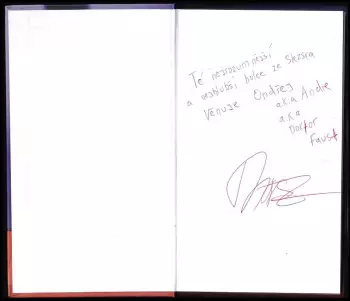 Té nejrozumnější
a nejhlubší holce ze Slezska
Věnuje Ondřej
a.k.a Andre
a.k.a
Doktor
Faust